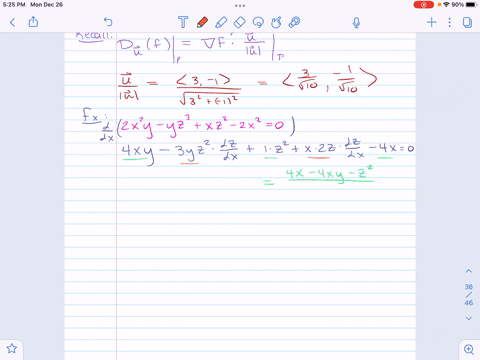 5:25 PM Mon Dec 26
90%
Recall:
D_u⃗ (f)|_P = ∇f · u⃗/|u⃗| |_P
u⃗/|u⃗| = <3, -1>/√(3²+(-1)²) = <3/√10, -1/√10>
f_x:
d/dx (2x²y - yz³ + xz² - 2x² = 0)
4xy - 3yz² · dz/dx + 1·z² + x·2z · dz/dx - 4x = 0
= (4x - 4xy - z²)/
36
/
46